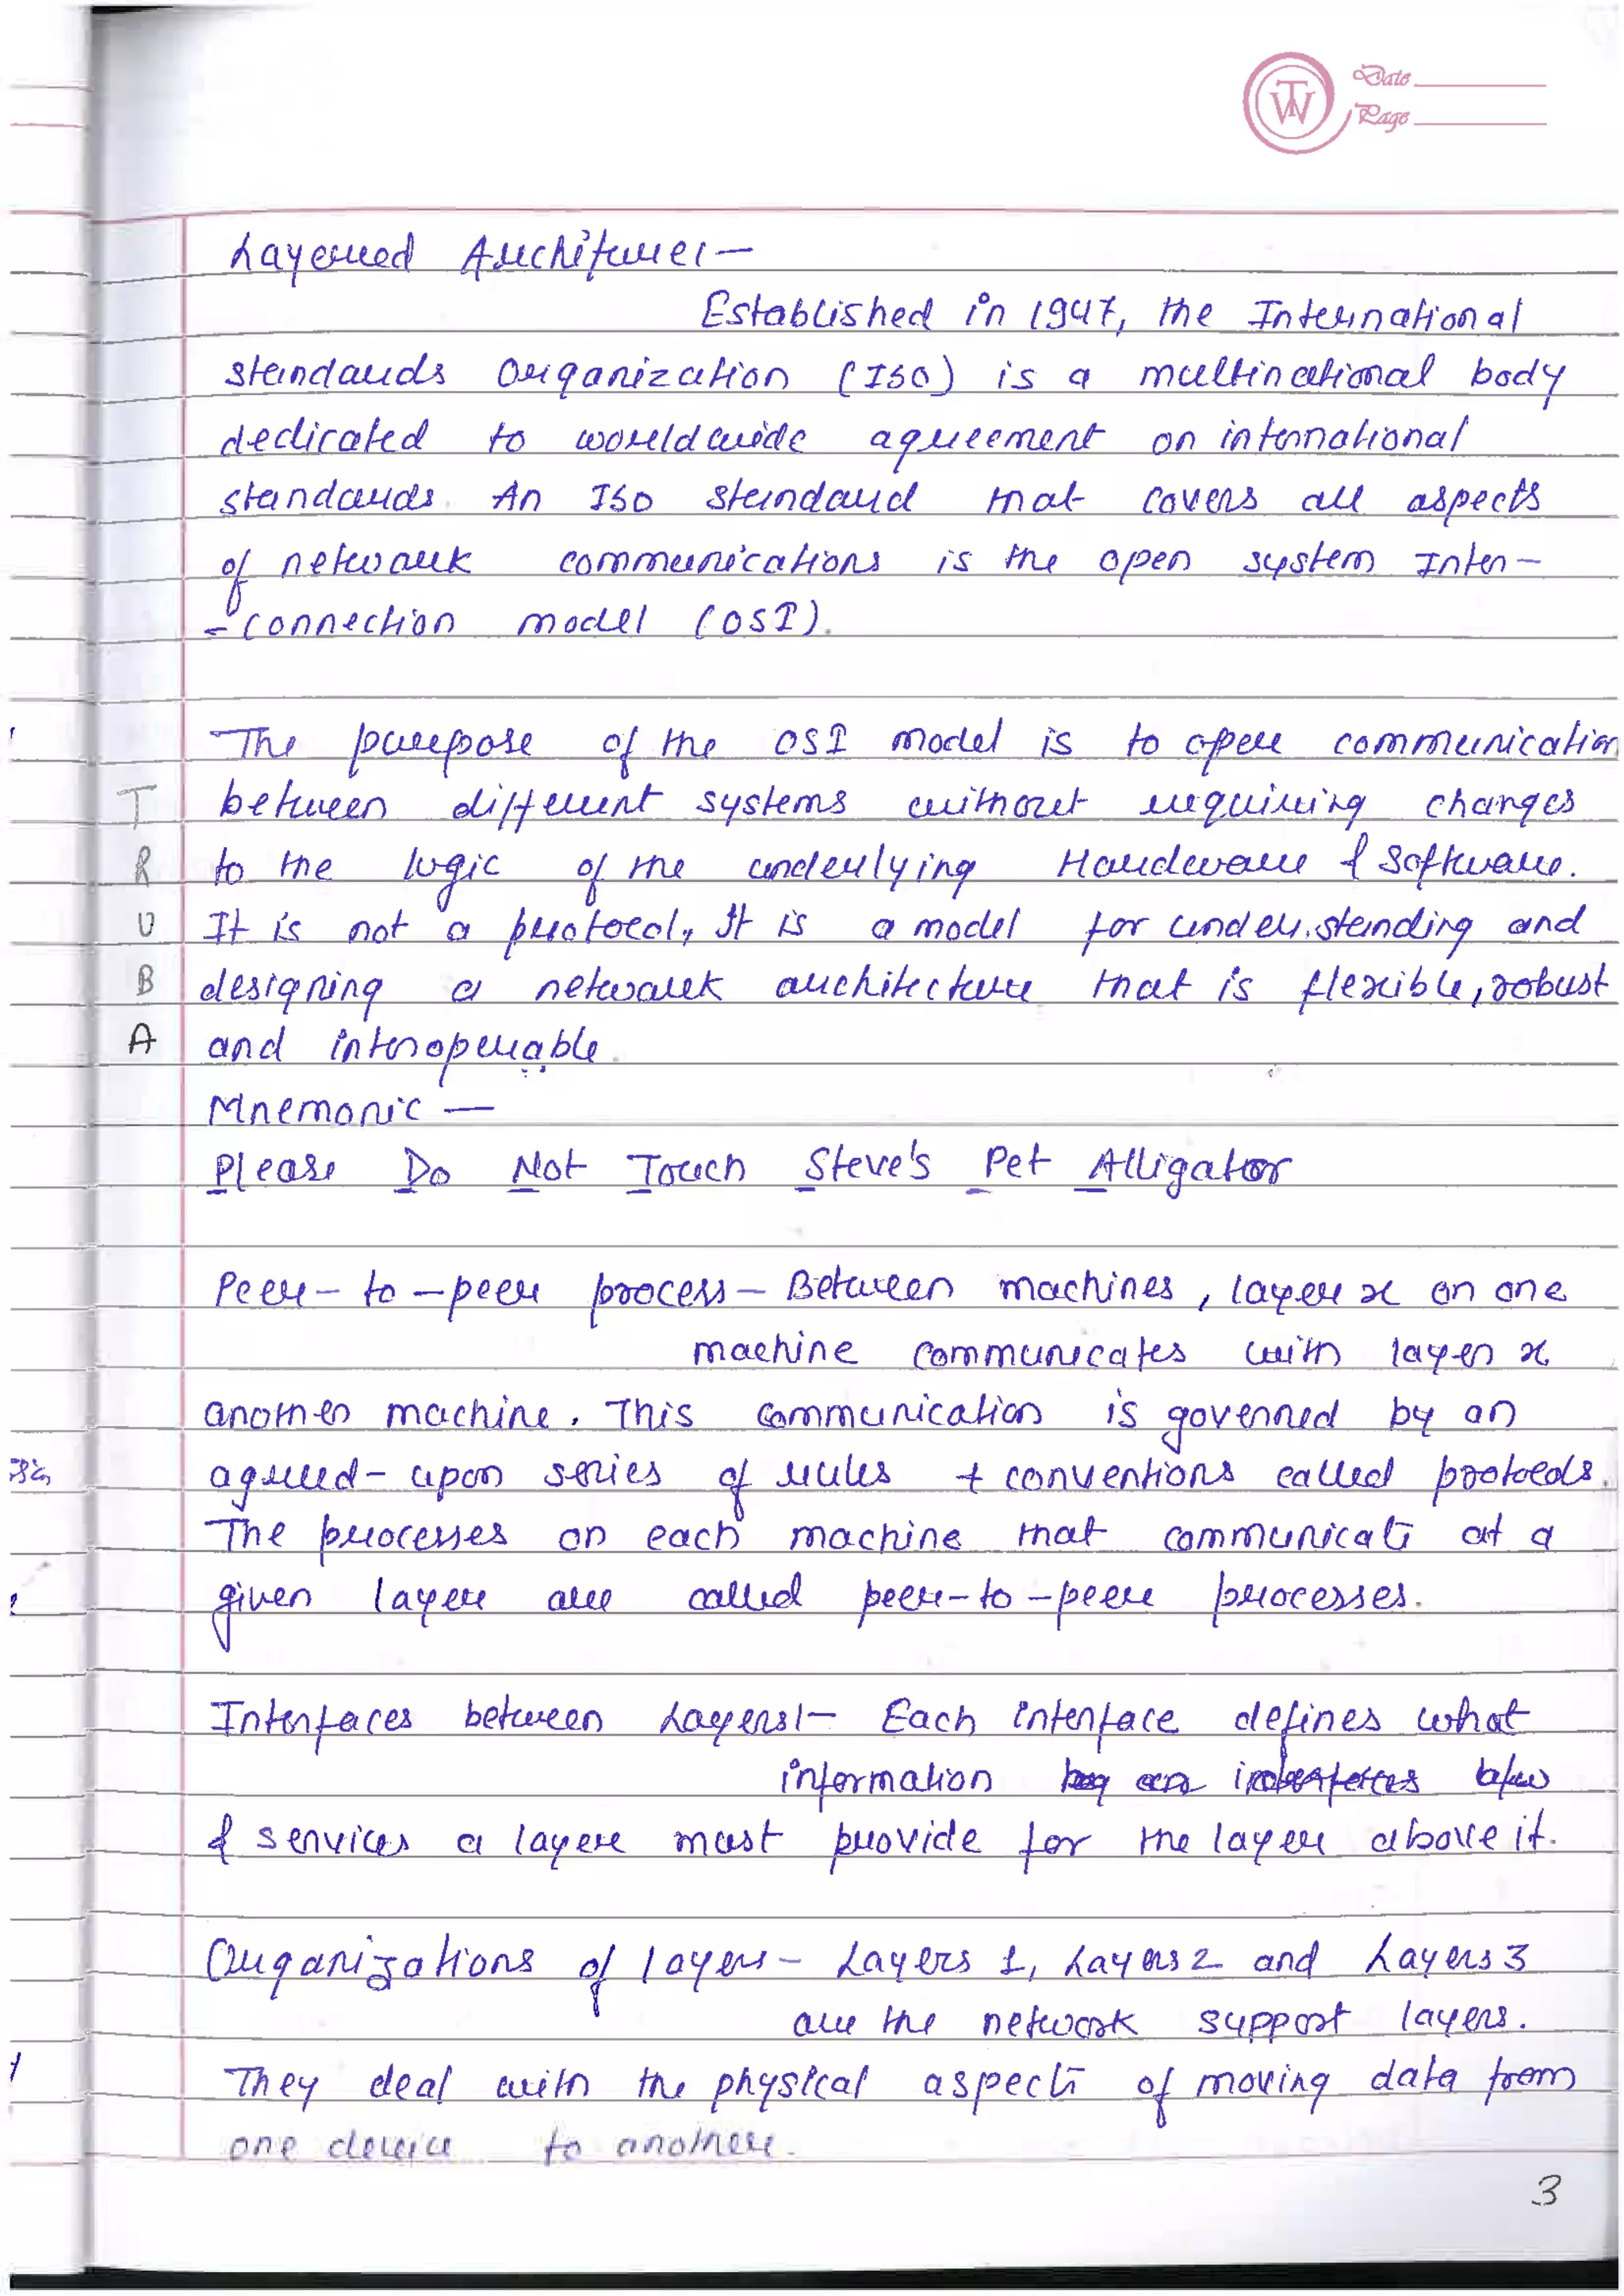 Date
Page
TW
Layered Architure:-
Established in 1947, the International
standards Organization (ISO) is a multinational body
dedicated to worldwide agreement on international
standards. An ISO standard that covers all aspects
of network communications is the open system Inter-
-connection model (OSI).
The purpose of the OSI model is to open communication
T between different systems without requiring changes
R to the logic of the underlying Hardware & Software.
U It is not a protocol, It is a model for understanding and
B designing a network architecture that is flexible, robust
A and interoperable.
Mnemonic —
Please Do Not Touch Steve's Pet Alligator
Peer-to-peer process - Between machines, layer x on one
machine communicates with layer x
another machine. This communication is governed by an
agreed-upon series of rules + conventions called protocols.
The processes on each machine that communicate at a
given layer are called peer-to-peer processes.
Interfaces between Layers:- Each interface defines what
information
& services a layer must provide for the layer above it.
Organizations of layers - Layers 1, Layers 2 and Layers 3
are the network support layers.
They deal with the physical aspects of moving data from
one device to another.
3